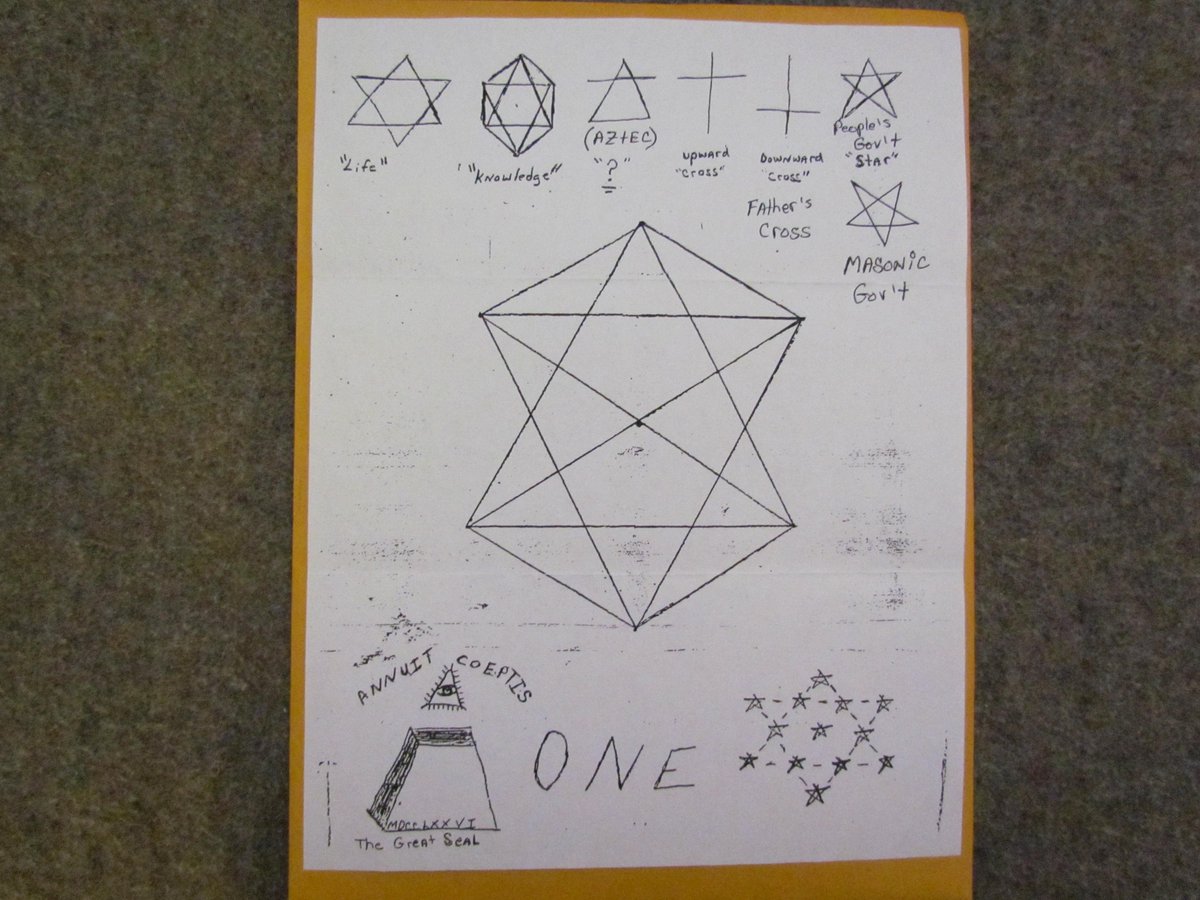 "Life"
"Knowledge"
(AZTEC)
"?"
UPWARD
"CROSS"
DOWNWARD
"CROSS"
FATher's
Cross
People's
Gov't
"Star"
MASONiC
Gov't
ANNUIT COEPTIS
MDCCLXXVI
The Great Seal
ONE